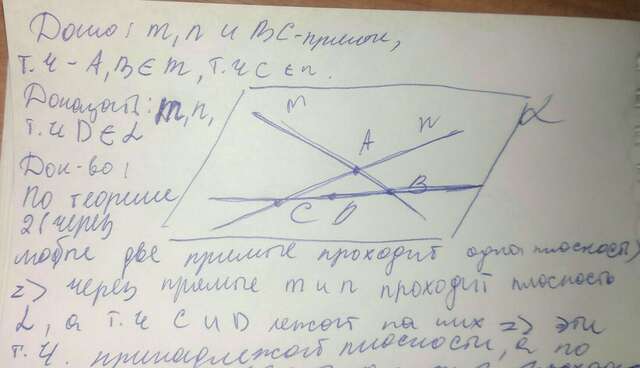 Дано: m, n и BC-прямые,
т.ч - A, B ∈ m, т.ч C ∈ n.
Доказать: m, n,
т. и D ∈ α
m
n
A
B
C
D
α
Док-во:
По теореме
2 (через
любые две прямые проходит одна плоскость)
=> через прямые m и n проходит плоскость
α, а т.ч C и D лежат на них => эти
т.ч. принадлежат плоскости, а по